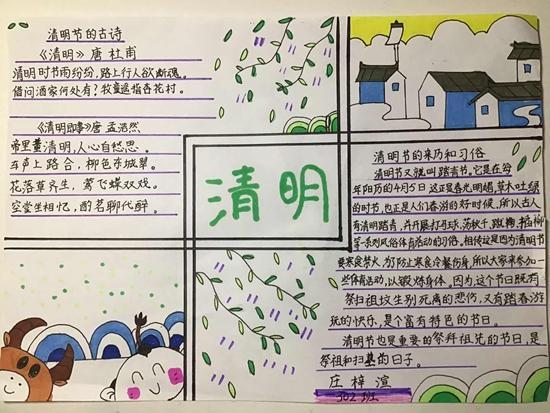 清明节的古诗
《清明》唐 杜甫
清明时节雨纷纷，路上行人欲断魂。
借问酒家何处有？牧童遥指杏花村。
《清明即事》唐 孟浩然
帝里重清明，人心自愁思。
车声上路合，柳色东城翠。
花落草齐生，莺飞蝶双戏。
空堂坐相忆，酌茗聊代醉。
清明
清明节的来历和习俗
清明节又就叫踏青节，它是在每
年阳历的4月5日 这正是春光明媚，草木吐绿
的时节，也正是人们春游的好时候，所以古人
有清明踏青，并开展打马球、荡秋千、蹴鞠、插柳
等一系列风俗体育活动的习俗，相传这是因为清明节
要寒食禁火，为了防止寒食冷餐伤身，所以大家来参加一
些体育活动，以锻炼身体，因为，这个节日既有
祭扫祖坟生别死离的悲伤，又有踏春游
玩的快乐，是个富有特色的节日。
清明节也是重要的祭拜祖先的节日，是
祭祖和扫墓的日子。
庄梓渲
302班